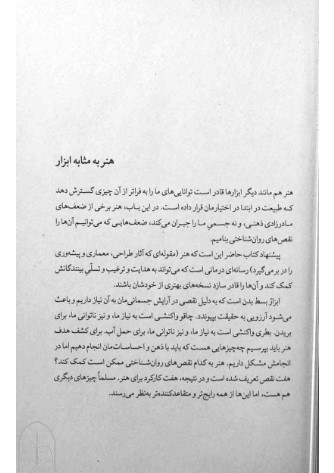 هنر به مثابه ابزار
هنر هم مانند دیگر ابزارها قادر است توانایی‌های ما را به فراتر از آن چیزی گسترش دهد
که طبیعت در ابتدا در اختیارمان قرار داده است. در این باب، هنر برخی از ضعف‌های
مادرزادی ذهنی، و نه جسمیِ ما را جبران می‌کند، ضعف‌هایی که می‌توانیم آن‌ها را
نقص‌های روان‌شناختی بنامیم.
پیشنهاد کتاب حاضر این است که هنر (مقوله‌ای که آثار طراحی، معماری و پیشه‌وری
را در برمی‌گیرد) رسانه‌ای درمانی است که می‌تواند به هدایت و ترغیب و تسلّیِ بینندگانش
کمک کند و آن‌ها را قادر سازد نسخه‌های بهتری از خودشان باشند.
ابزار بسط بدن است که به دلیل نقصی در آرایش جسمانی‌مان به آن نیاز داریم و باعث
می‌شود آرزویی به حقیقت بپیوندد. چاقو واکنشی است به نیاز ما، و نیز ناتوانی ما، برای
بریدن. بطری واکنشی است به نیاز ما، و نیز ناتوانی ما، برای حمل آب. برای کشف هدف
هنر باید بپرسیم چه چیزهایی هست که باید با ذهن و احساسات‌مان انجام دهیم اما در
انجامش مشکل داریم. هنر به کدام نقص‌های روان‌شناختی ممکن است کمک کند؟
هفت نقص تعریف شده است و در نتیجه، هفت کارکرد برای هنر. مسلماً چیزهای دیگری
هم هست، اما این‌ها از همه رایج‌تر و متقاعدکننده‌تر به‌نظر می‌رسند.